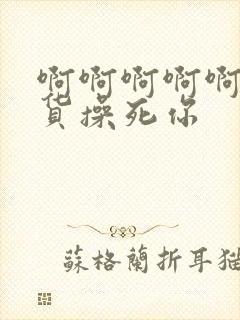 啊啊啊啊啊
货操死你
蘇格蘭折耳猫